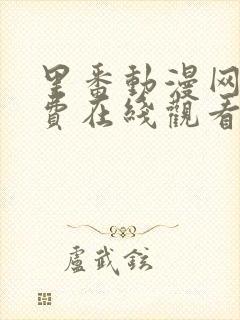 里番動漫网
費在綫觀看
盧武鉉